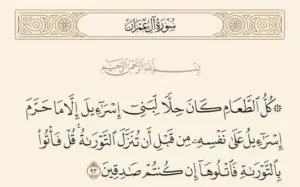 سُورَةُ آلِ عِمۡرَانَ
بِسۡمِ ٱللَّهِ ٱلرَّحۡمَٰنِ ٱلرَّحِيمِ
۞ كُلُّ ٱلطَّعَامِ كَانَ حِلّٗا لِّبَنِيٓ إِسۡرَٰٓءِيلَ إِلَّا مَا حَرَّمَ
إِسۡرَٰٓءِيلُ عَلَىٰ نَفۡسِهِۦ مِن قَبۡلِ أَن تُنَزَّلَ ٱلتَّوۡرَىٰةُۚ قُلۡ فَأۡتُواْ
بِٱلتَّوۡرَىٰةِ فَٱتۡلُوهَآ إِن كُنتُمۡ صَٰدِقِينَ ٩٣